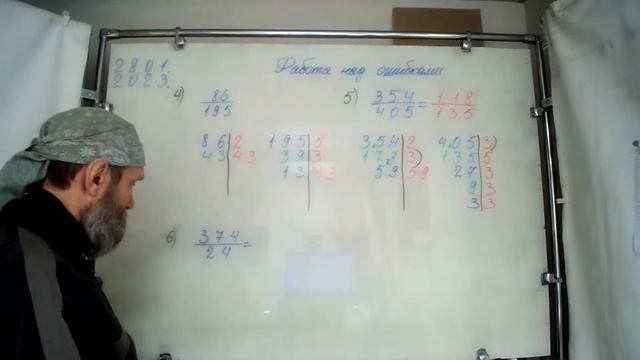 2801.
2023.
Работа над ошибками
4) 86/195
5) 354/405 = 118/135
86 | 2
43 | 43
195 | 5
39 | 3
13 | 13
354 | 2
177 | 3
59 | 59
405 | 3
135 | 5
27 | 3
9 | 3
3 | 3
6) 374/24 =